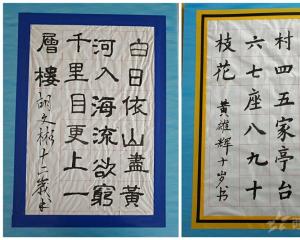 白日依山盡黃
河入海流欲窮
千里目更上一
層樓 胡文彬十二歲書
村四五家亭台
六七座八九十
枝花 黄雄辉十岁书